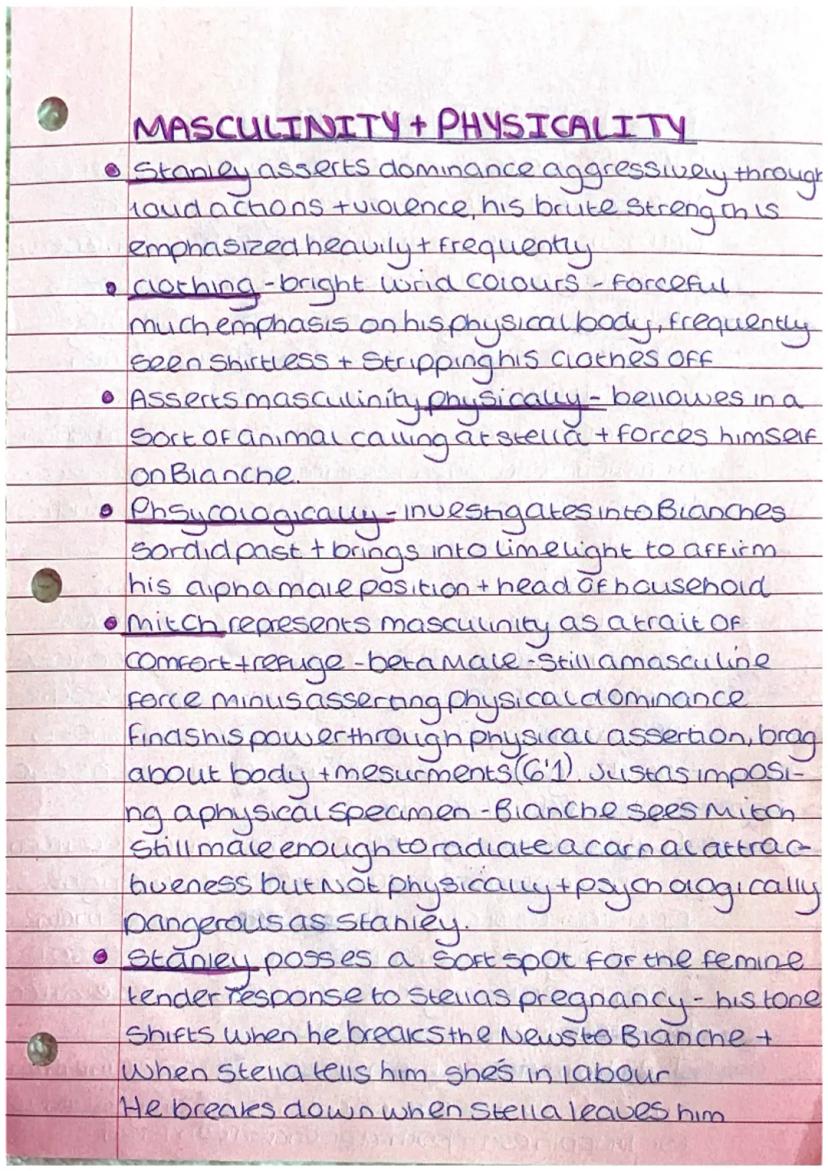 MASCULINITY + PHYSICALITY
• Stanley asserts dominance aggressively through
loud actions + violence, his brute strength is
emphasized heavily + frequently
• Clothing - bright lurid colours - forceful
much emphasis on his physical body, frequently
seen shirtless + stripping his clothes off
• Asserts masculinity physically - bellowes in a
sort of animal calling at stella + forces himself
on Blanche.
• Phsycologically - investigates into Blanches
sordid past + brings into limelight to affirm
his alpha male position + head of household
• Mitch represents masculinity as a trait of
comfort + refuge - beta Male - still a masculine
force minus asserting physical dominance
finds his power through physical assertion, brag
about body + mesurments (6'1). Just as imposi-
ng a physical specimen - Blanche sees Mitch
still male enough to radiate a carnal attrac-
tiveness but Not physically + psychologically
Dangerous as Stanley.
• Stanley posses a soft spot for the femine
tender response to Stellas pregnancy - his tone
shifts when he breaks the News to Blanche +
when stella tells him she's in labour
He breaks down when Stella leaves him